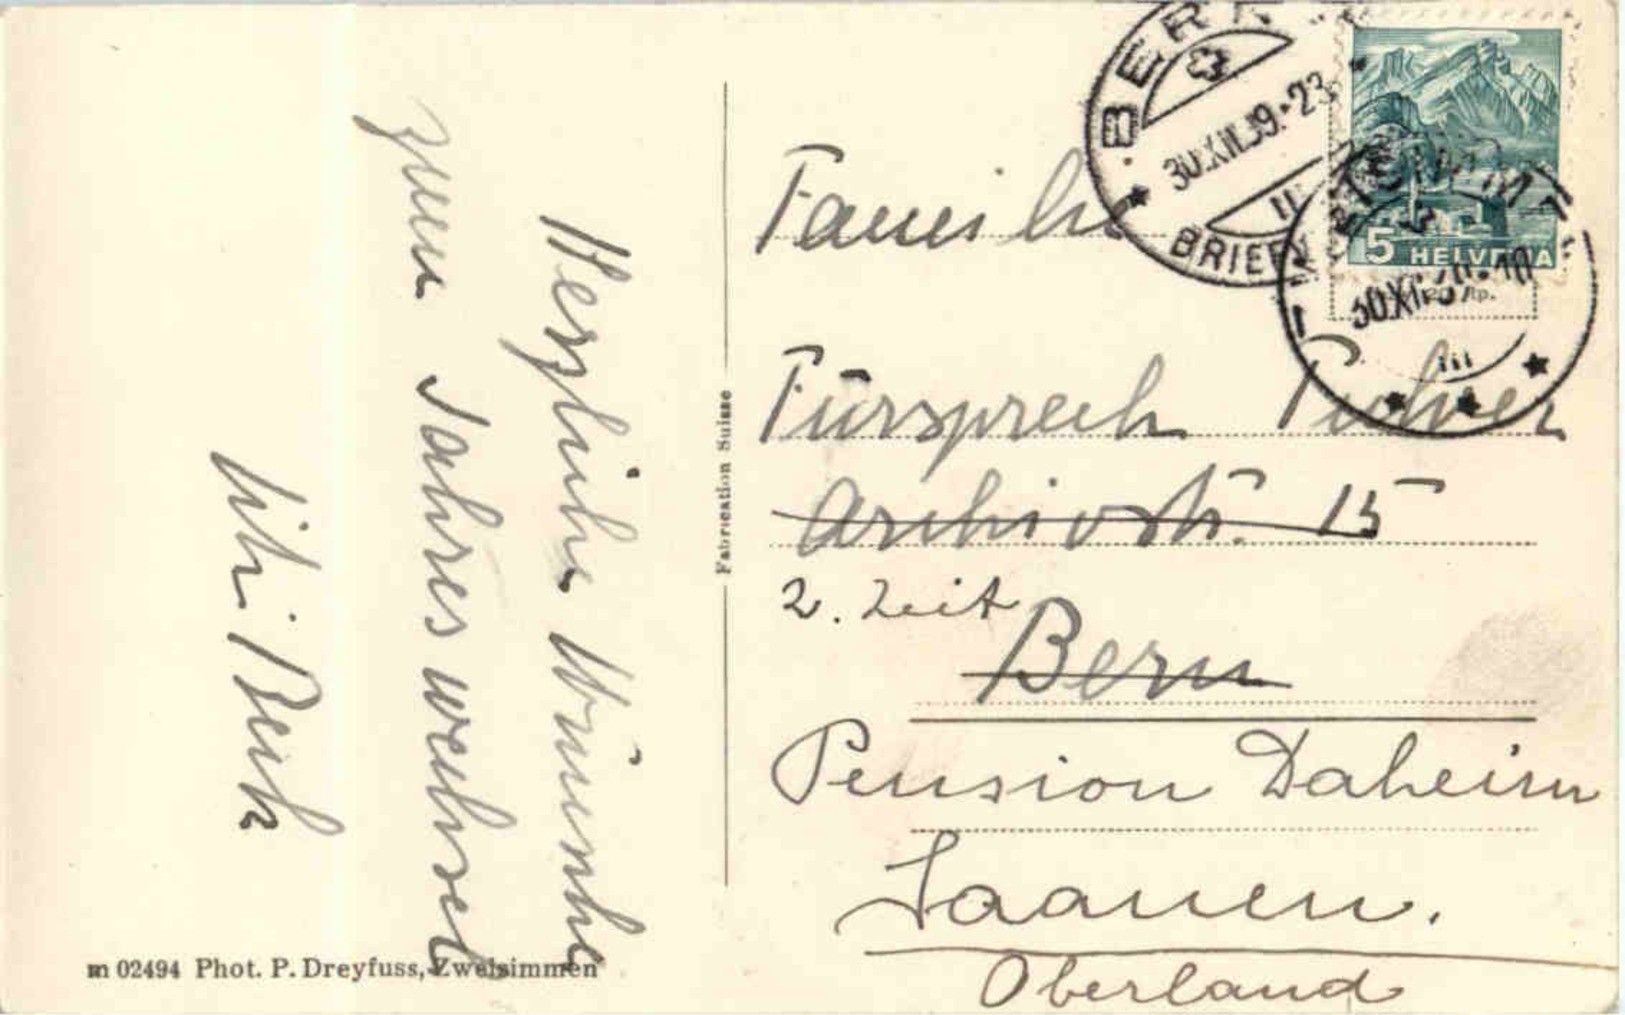 Herzliche Wünsche
zum Jahreswechsel
Beck
m 02494 Phot. P. Dreyfuss, Zweisimmen
Fabrication Suisse
BERN
30.XII.39.-23
II
BRIEF
5 HELVETIA
30.XII.39.-10
Rp.
III
Familie
Fürsprech Pulver
Archivstr. 15
z. Zeit
Bern
Pension Daheim
Saanen.
Oberland